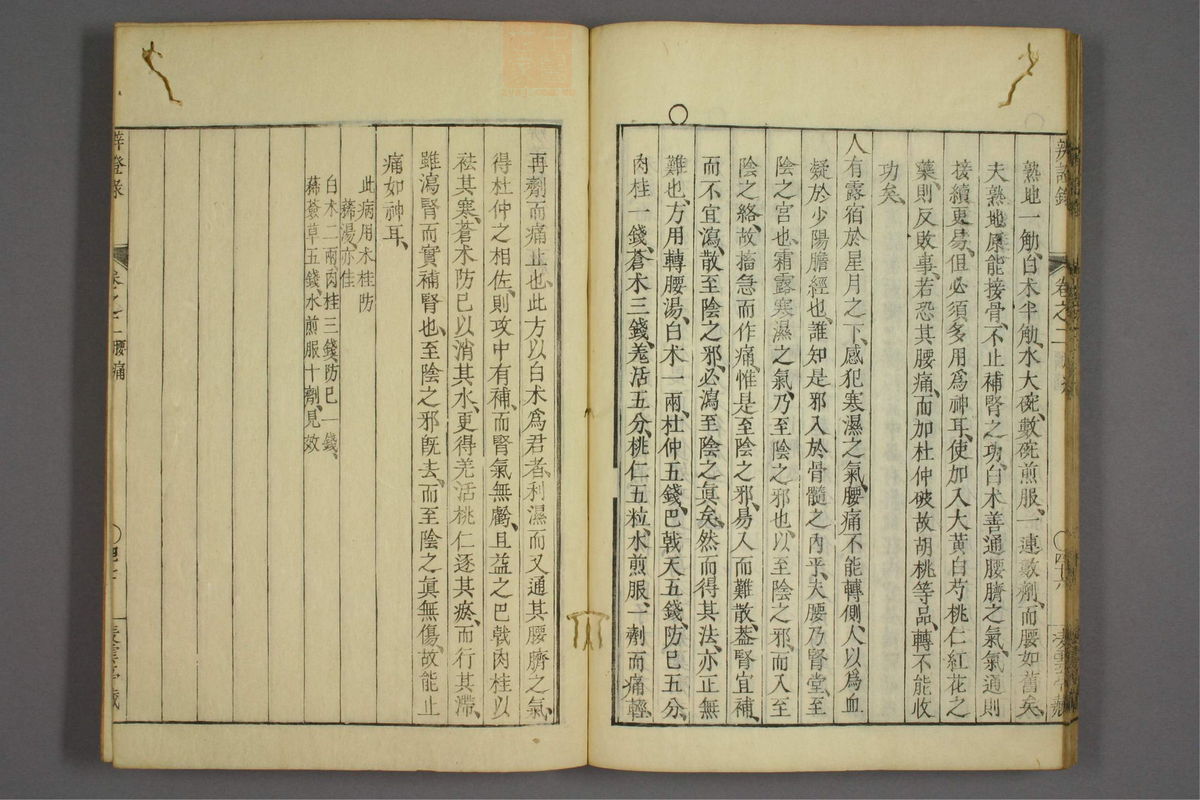 熟地一觔、白术半觔、水大碗、數碗煎服、一連數劑、而腰如舊矣、
夫熟地原能接骨、不止補腎之功、白术善通腰臍之氣、氣通則
接續更易、但必須多用爲神耳、使加入大黄白芍桃仁紅花之
藥、則反敗事、若恐其腰痛、而加杜仲破故胡桃等品、轉不能收
功矣、
人有露宿於星月之下、感犯寒濕之氣、腰痛不能轉側、人以爲血
凝於少陽膽經也、誰知是邪入於骨髓之內乎、夫腰乃腎堂、至
陰之宮也、霜露寒濕之氣、乃至陰之邪也、以至陰之邪、而入至
陰之絡、故搐急而作痛、惟是至陰之邪、易入而難散、蓋腎宜補、
而不宜瀉、散至陰之邪、必瀉至陰之眞矣、然而得其法、亦正無
難也、方用轉腰湯、白术一兩、杜仲五錢、巴戟天五錢、防已五分、
肉桂一錢、蒼术三錢、羌活五分、桃仁五粒、水煎服、一劑而痛輕、
再劑而痛止也、此方以白术爲君者、利濕而又通其腰臍之氣、
得杜仲之相佐、則攻中有補、而腎氣無虧、且益之巴戟肉桂以
祛其寒、蒼术防已以消其水、更得羌活桃仁逐其瘀、而行其滯、
雖瀉腎而實補腎也、至陰之邪旣去、而至陰之眞無傷、故能止
痛如神耳、
此病用术桂防
豨湯、亦佳
白术二兩肉桂三錢、防已一錢、
豨薟草五錢、水煎服十劑、見效
辨證錄
卷之二
腰痛